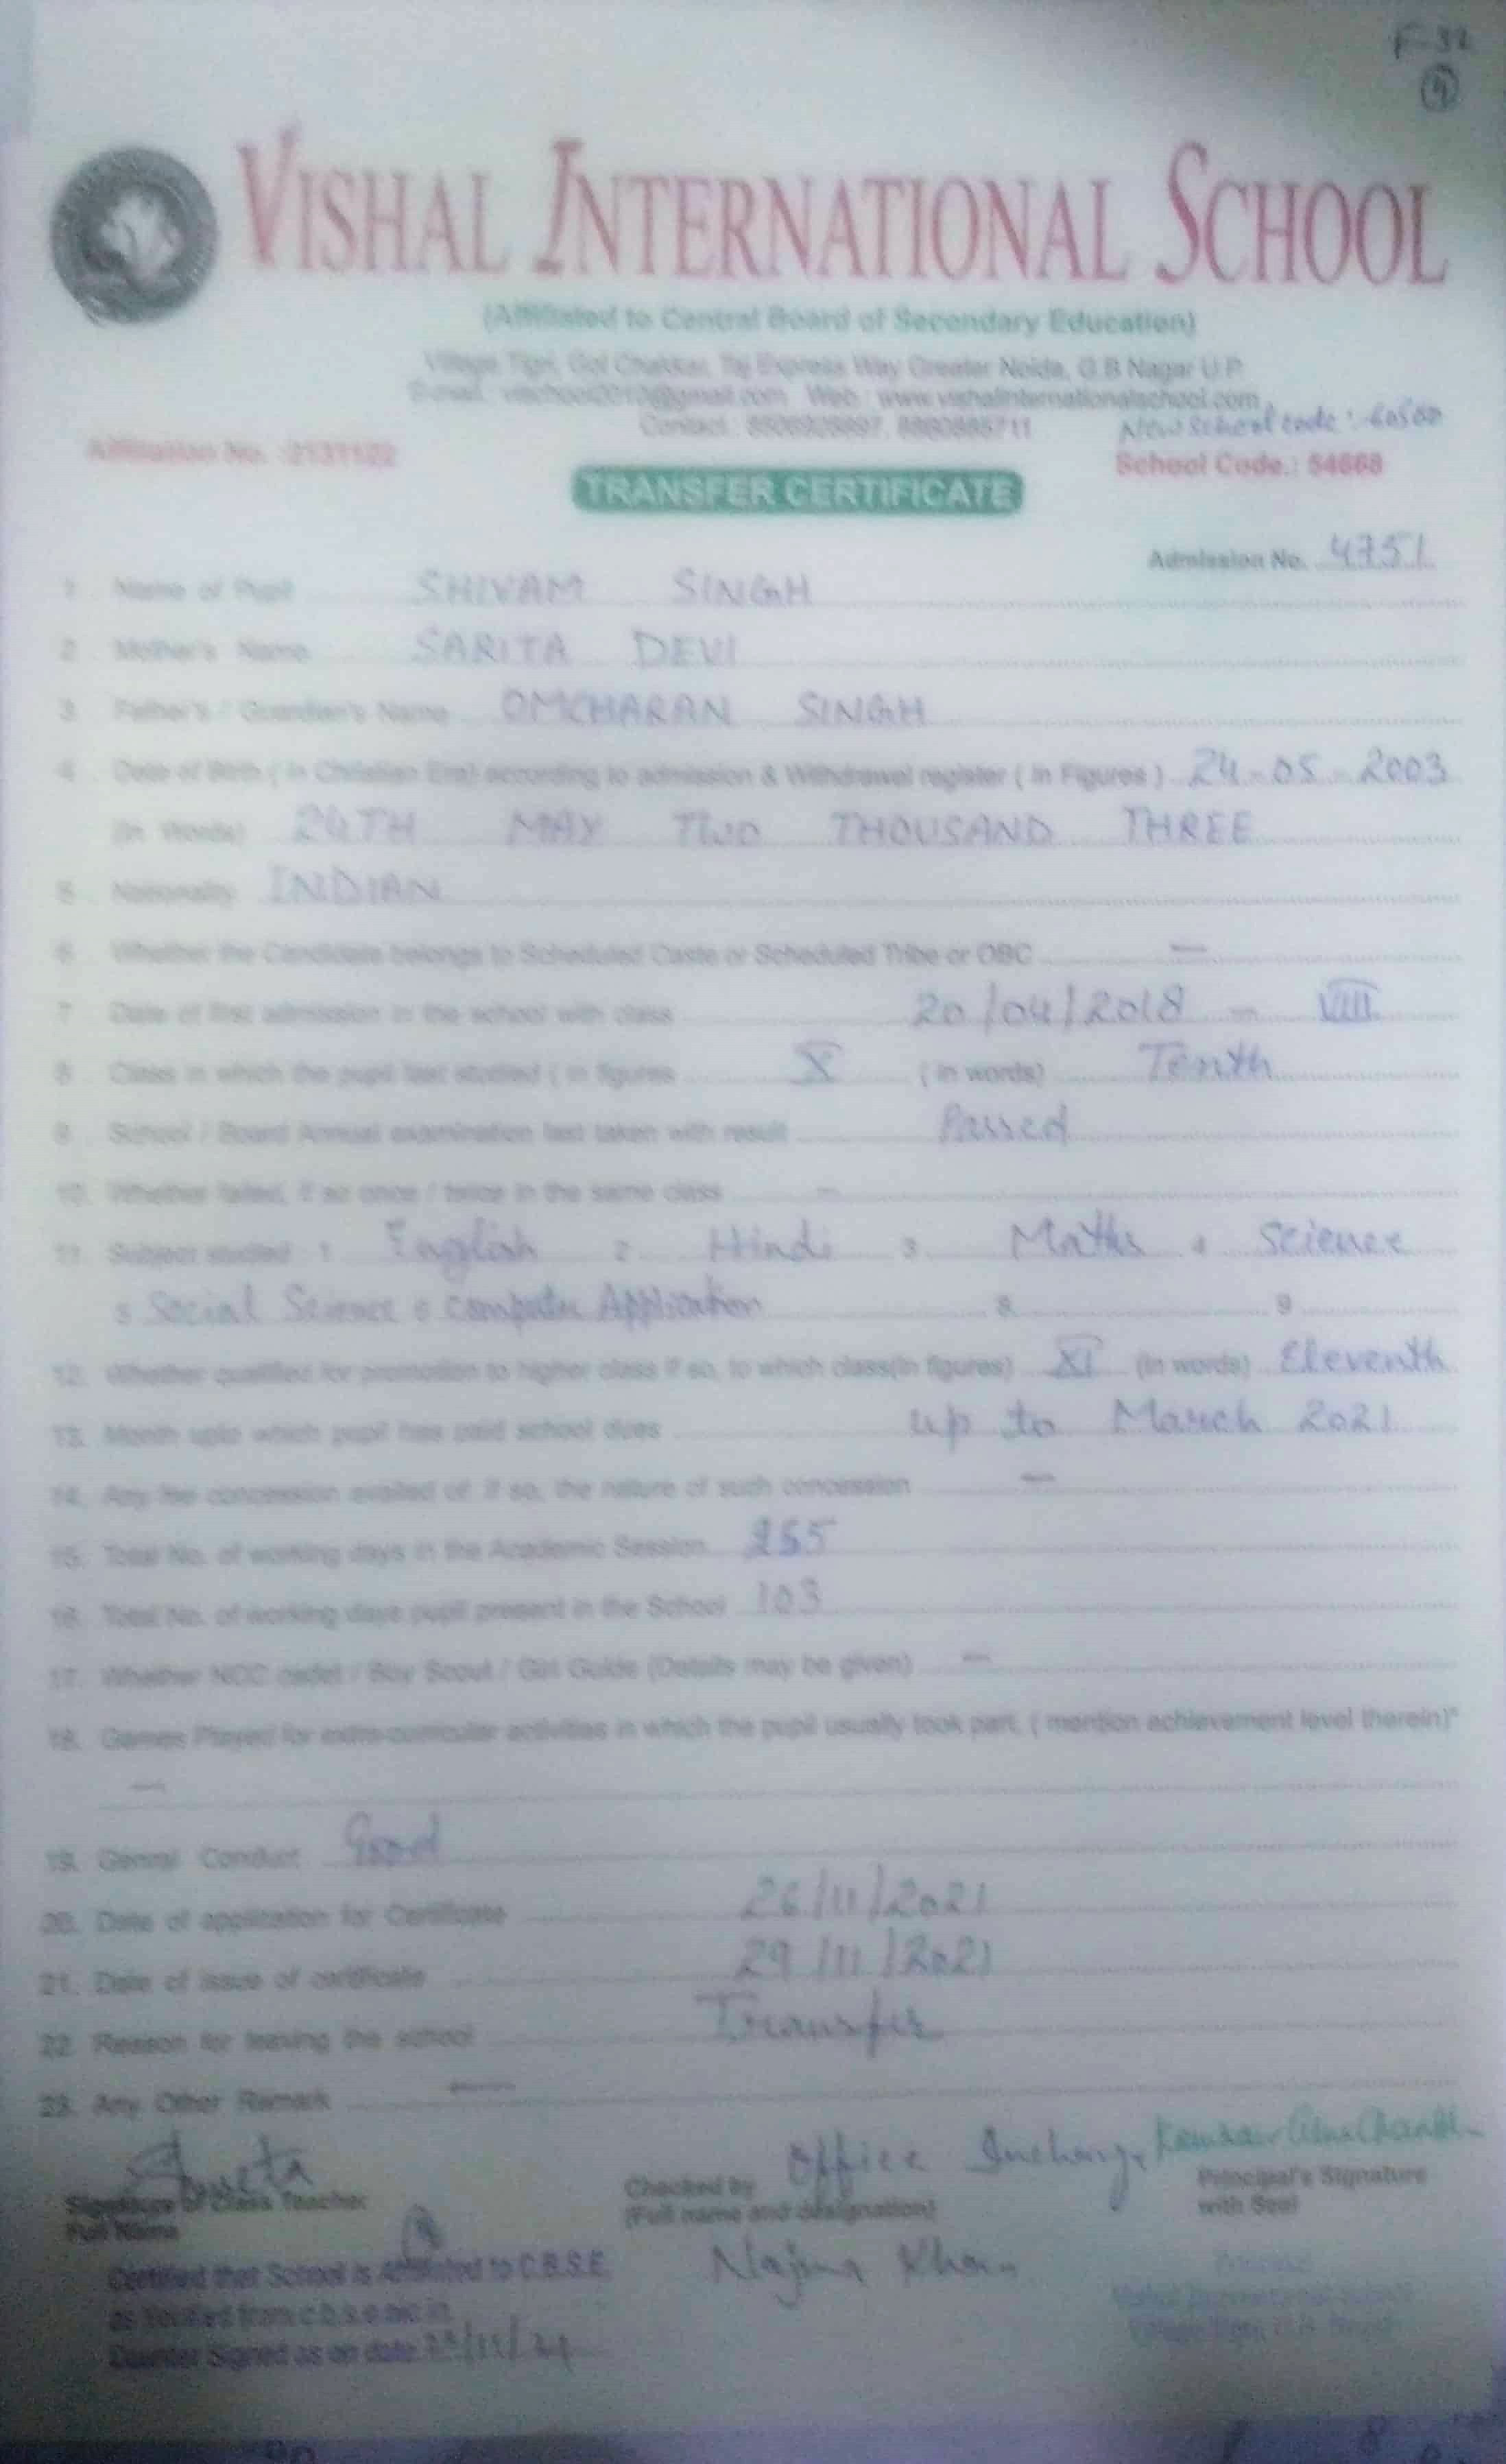 F-32
4
VISHAL INTERNATIONAL SCHOOL
(Affiliated to Central Board of Secondary Education)
Village Tigri, Gol Chakkar, Taj Express Way Greater Noida, G.B Nagar U.P.
Web : www.vishalinternationalschool.com
Contact :
New School code :- 60500
Affiliation No. :2131122
School Code.: 54668
TRANSFER CERTIFICATE
Admission No. 4751
1. Name of Pupil SHIVAM SINGH
2. Mother's Name SARITA DEVI
3. Father's / Guardian's Name OMCHARAN SINGH
4. Date of Birth ( In Christian Era) according to admission & Withdrawal register ( In Figures ) 24-05-2003
(In Words) 24TH MAY TWO THOUSAND THREE
5. Nationality INDIAN
6. Whether the Candidate belongs to Scheduled Caste or Scheduled Tribe or OBC —
7. Date of first admission in the school with class 20/04/2018 - VIII
8. Class in which the pupil last studied ( in figures X ( in words) Tenth
9. School / Board Annual examination last taken with result Passed
10. Whether failed, if so once / twice in the same class -
11. Subject studied 1. English 2. Hindi 3. Maths 4. Science
5 Social Science 6 Computer Application 8 9
12. Whether qualified for promotion to higher class if so, to which class(in figures) XI (in words) Eleventh
13. Month upto which pupil has paid school dues up to March 2021
14. Any fee concession availed of. if so, the nature of such concession —
15. Total No. of working days in the Academic Session
16. Total No. of working days pupil present in the School 103
17. Whether NCC cadet / Boy Scout / Girl Guide (Details may be given) —
18. Games Played for extra-curricular activities in which the pupil usually took part. ( mention achievement level therein)*
—
19. Genral Conduct Good
20. Date of application for Certificate 26/11/2021
21. Date of issue of certificate 29/11/2021
22. Reason for leaving the school Transfer
23. Any Other Remark —
Shweta
Signature of Class Teacher
Full Name
Checked by Office Incharge
(Full name and designation)
Najma Khan
Principal's Signature
with Seal
Certified that School is Affiliated to C.B.S.E.
as Verified from c.b.s.e.nic.in
Counter Signed as on date
Principal